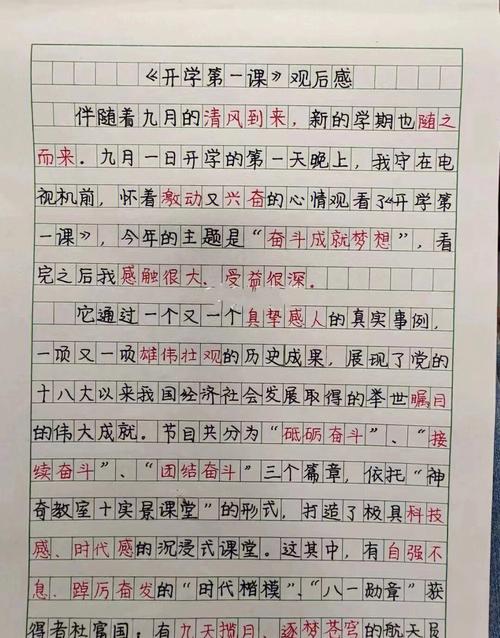 《开学第一课》观后感
伴随着九月的清风到来，新的学期也随之
而来．九月一日开学的第一天晚上，我守在电
视机前，怀着激动又兴奋的心情观看了《开学第
一课》，今年的主题是“奋斗成就梦想”，看
完之后我感触很大、受益很深。
它通过一个又一个真挚感人的真实事例，
一项又一项雄伟壮观的历史成果，展现了党的
十八大以来我国经济社会发展取得的举世瞩目
的伟大成就．节目共分为“砥砺奋斗”、“接
续奋斗”、“团结奋斗”三个篇章，依托“神
奇教室十实景课堂”的形式，打造了极具科技
感、时代感的沉浸式课堂。这其中，有自强不
息、踔厉奋发的“时代楷模”、“八一勋章”获
得者杜富国；有九天揽月、逐梦苍穹的航天员